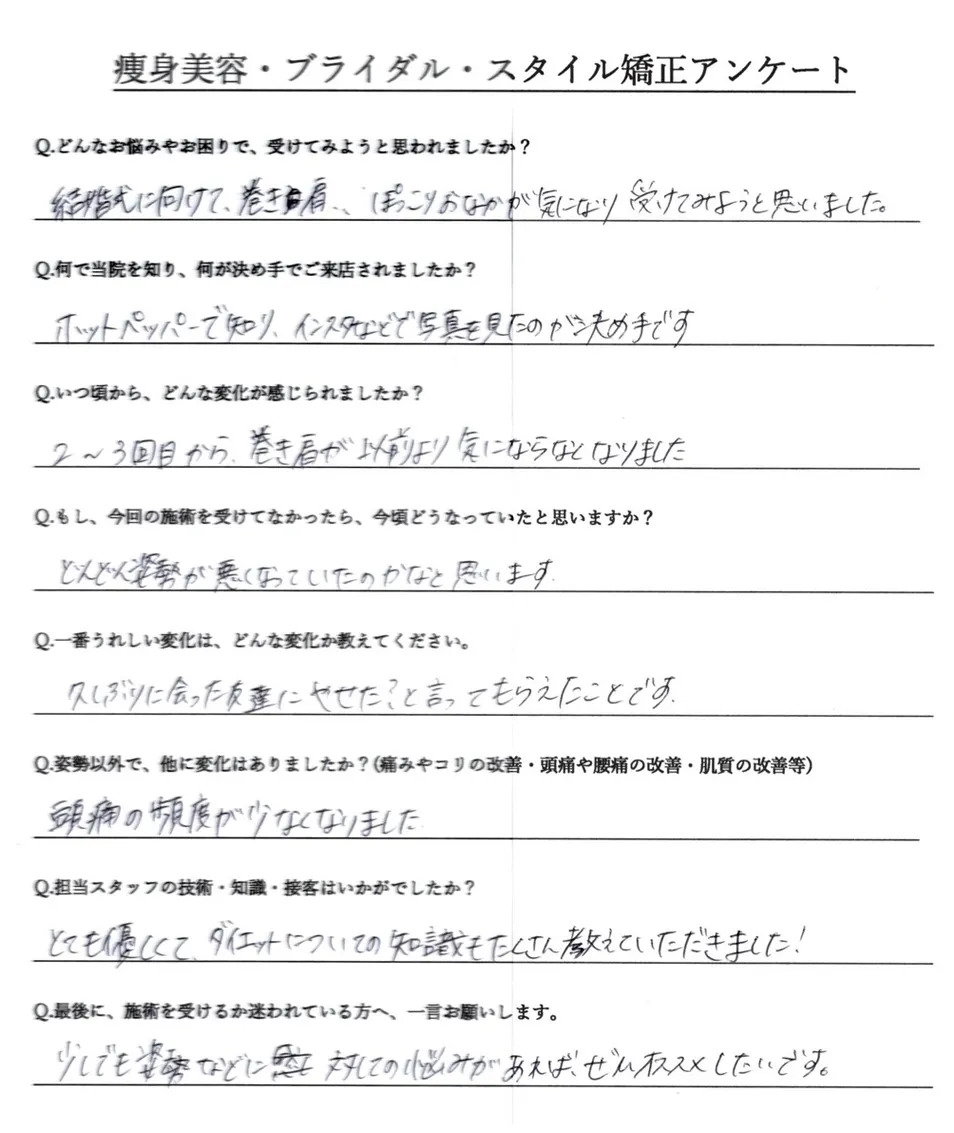 痩身美容・ブライダル・スタイル矯正アンケート
Q.どんなお悩みやお困りで、受けてみようと思われましたか？
結婚式に向けて、巻き肩、、ぽっこりおなかが気になり受けてみようと思いました。
Q.何で当院を知り、何が決め手でご来店されましたか？
ホットペッパーで知り、インスタなどで写真を見たのが決め手です
Q.いつ頃から、どんな変化が感じられましたか？
2〜3回目から、巻き肩が以前より気にならなくなりました
Q.もし、今回の施術を受けてなかったら、今頃どうなっていたと思いますか？
どんどん姿勢が悪くなっていたのかなと思います.
Q.一番うれしい変化は、どんな変化か教えてください。
久しぶりに会った友達にやせた？と言ってもらえたことです.
Q.姿勢以外で、他に変化はありましたか？（痛みやコリの改善・頭痛や腰痛の改善・肌質の改善等）
頭痛の頻度が少なくなりました.
Q.担当スタッフの技術・知識・接客はいかがでしたか？
とても優しくて、ダイエットについての知識もたくさん教えていただきました！
Q.最後に、施術を受けるか迷われている方へ、一言お願いします。
少しでも姿勢などに対しての悩みがあれば、ぜひオススメしたいです。